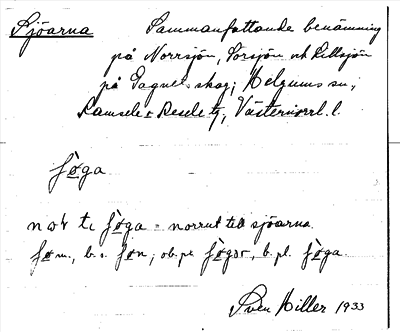 Sjöarna Sammanfattande benämning
på Norrsjön, Sörsjön och Lillsjön
på Gagnets skog; Helgums sn;
Ramsele o Resele tg, Västernorrl. l.
fø̀ga
nɷr te fø̀ga = norrut till sjöarna.
fø m., b. s. føn; ob. pl. fø̀gɷr, b. pl. fø̀ga.
Sven Hiller 1933